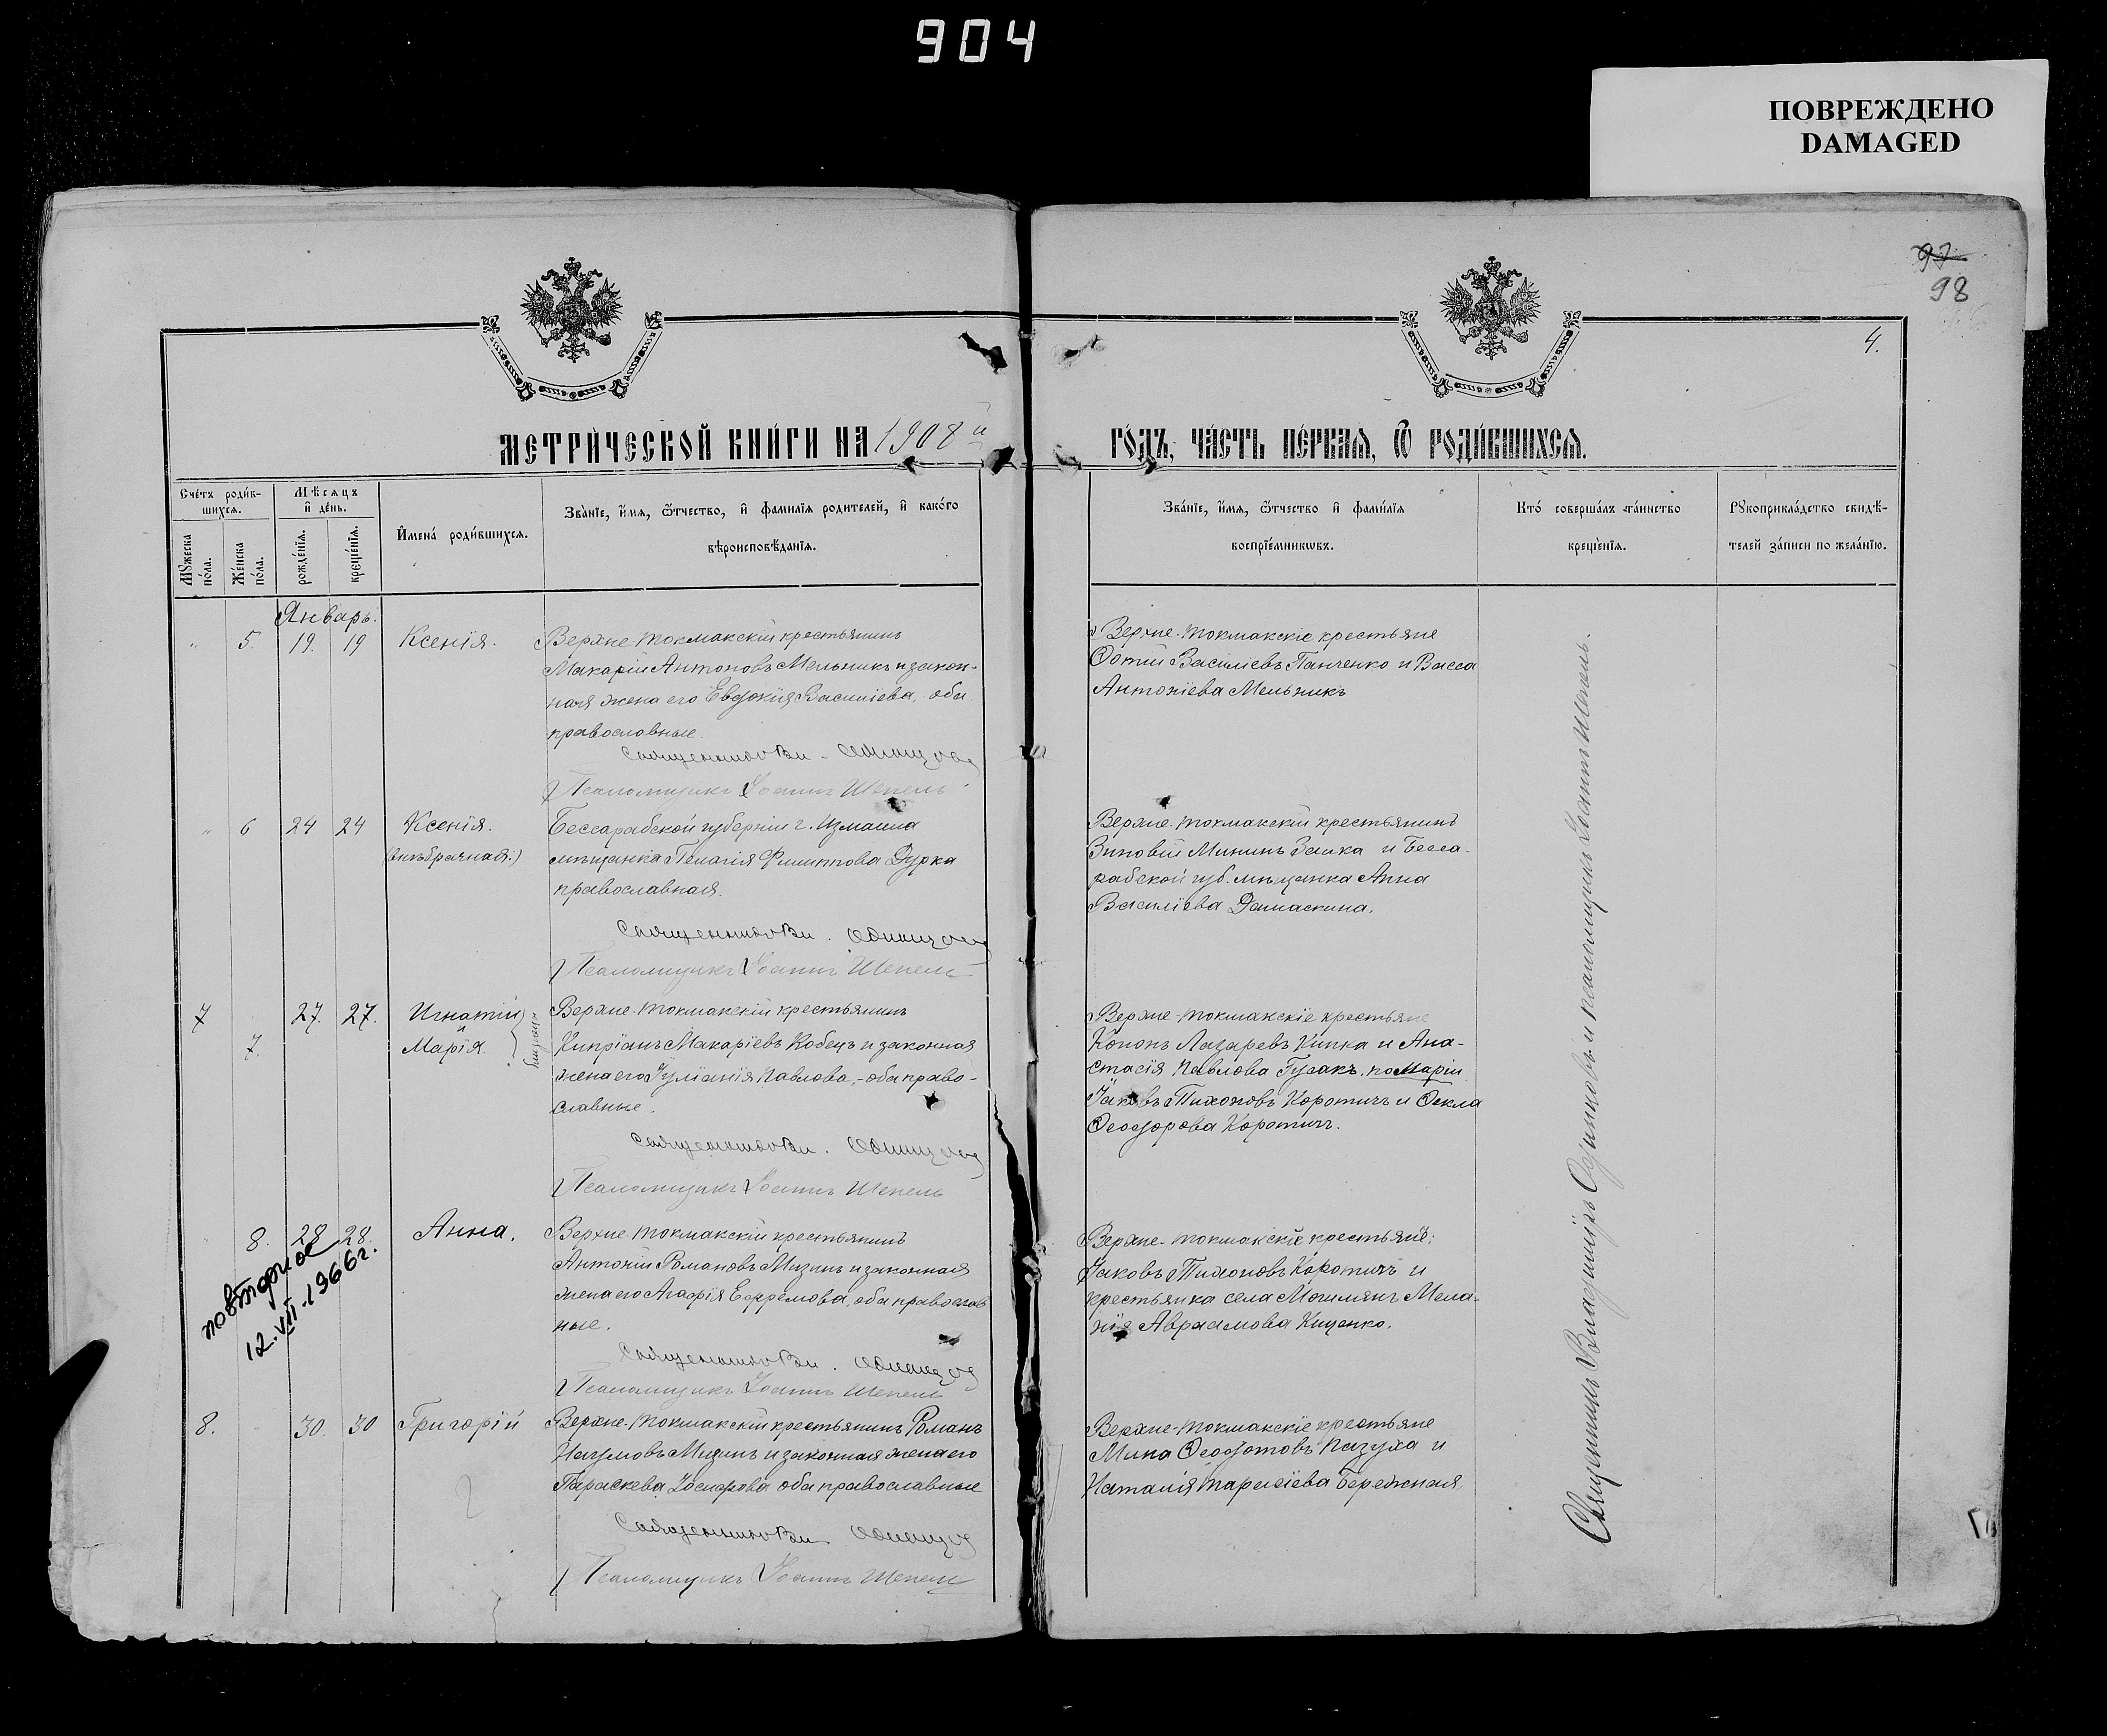 904
ПОВРЕЖДЕНО
DAMAGED
97
98
4.
МЕТРИ́ЧЕСКОЙ КНИ́ГИ НА 1908 й
ГО́ДЪ, ЧА́СТЬ ПЕ́РВАѦ, Ѿ РОДИ́ВШИХСѦ.
Сче́тъ роди́в-
шихсѧ.
Мѣ́сѧцъ
и҆ де́нь.
Мꙋ́жеска
по́ла.
Же́нска
по́ла.
рожде́нїѧ.
креще́нїѧ.
И҆мена̀ роди́вшихсѧ.
Зва́нїе, и҆́мѧ, ѻ҆́тчество, и҆ фамилїѧ родителей, и҆ како́го
вѣроисповѣ́данїѧ.
Зва́нїе, и҆́мѧ, ѻ҆́тчество и҆ фами́лїѧ
воспрїе́мникѡвъ.
Кто́ соверша́лъ та́инство
креще́нїѧ.
Рꙋкоприкла́дство свидѣ́-
телей за́писи по жела́нїю.
Январь.
" 5. 19. 19 Ксенія.
Верхне-токмакскій крестьянинъ
Макарій Антоновъ Мельникъ и закон-
ная жена его Евдокія Василіева, оба
православные.
Священникъ Вл. Одинцов
Псаломщикъ Іоаннъ Шепель
Верхне-токмакскіе крестьяне
Фотій Василіевъ Панченко и Васса
Антоніева Мельникъ
" 6 24 24 Ксенія.
(внѣбрачная.)
Бессарабской губерніи г. Измаила
мѣщанка Пелагія Филиппова Дурка
православная.
Священникъ Вл. Одинцов
Псаломщикъ Іоаннъ Шепель
Верхне-токмакскій крестьянинъ
Зиновій Мининъ Заика и Бесса-
рабской губ. мѣщанка Анна
Василіева Дамаскина.
7 27. 27. Игнатій
7. и
Марія
близнецы
Верхне-токмакскій крестьянинъ
Кипріанъ Макаріевъ Кобецъ и законная
жена его Іуліанія Павлова, - оба право-
славные.
Священникъ Вл. Одинцов
Псаломщикъ Іоаннъ Шепель
Верхне-токмакскіе крестьяне
Кононъ Лазаревъ Кипка и Ана-
стасія Павлова Гусакъ, по Маріи
Іаковъ Тихоновъ Коротичъ и Ѳекла
Ѳеодорова Коротичъ.
" 8. 28 28. Анна.
повторное
12.VII-1966г.
Верхне-токмакскій крестьянинъ
Антоній Романовъ Мизинъ и законная
жена его Агафія Ефремова, оба православ
ные.
Священникъ Вл. Одинцов
Псаломщикъ Іоаннъ Шепель
Верхне-токмакскій крестьянe:
Іаковъ Тихоновъ Коротичъ и
крестьянка села Могилянъ Мела-
нія Авраамова Кищенко.
8. 30. 30 Григорій
Верхне-токмакскій крестьянинъ Романъ
Наумовъ Мизинъ и законная жена его
Параскева Іосифова оба православные
Священникъ Вл. Одинцов
Псаломщикъ Іоаннъ Шепель
Верхне-токмакскіе крестьяне
Мина Ѳеодотовъ Пазуха и
Наталія Тарасіева Бережная.
Священникъ Владиміръ Одинцовъ и псаломщикъ Іоаннъ Шепель.